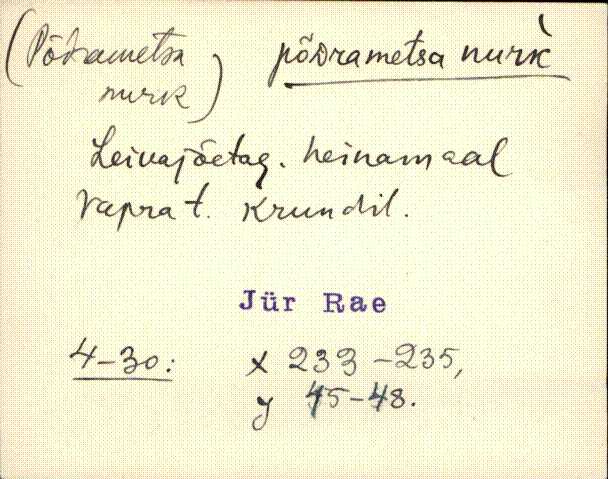 (Põdrametsa nurk)
põdrametsa nurk`
Leivajõetag. heinamaal
Vaprat. krundil.
Jür Rae
4-30: x 233-235,
y 45-48.